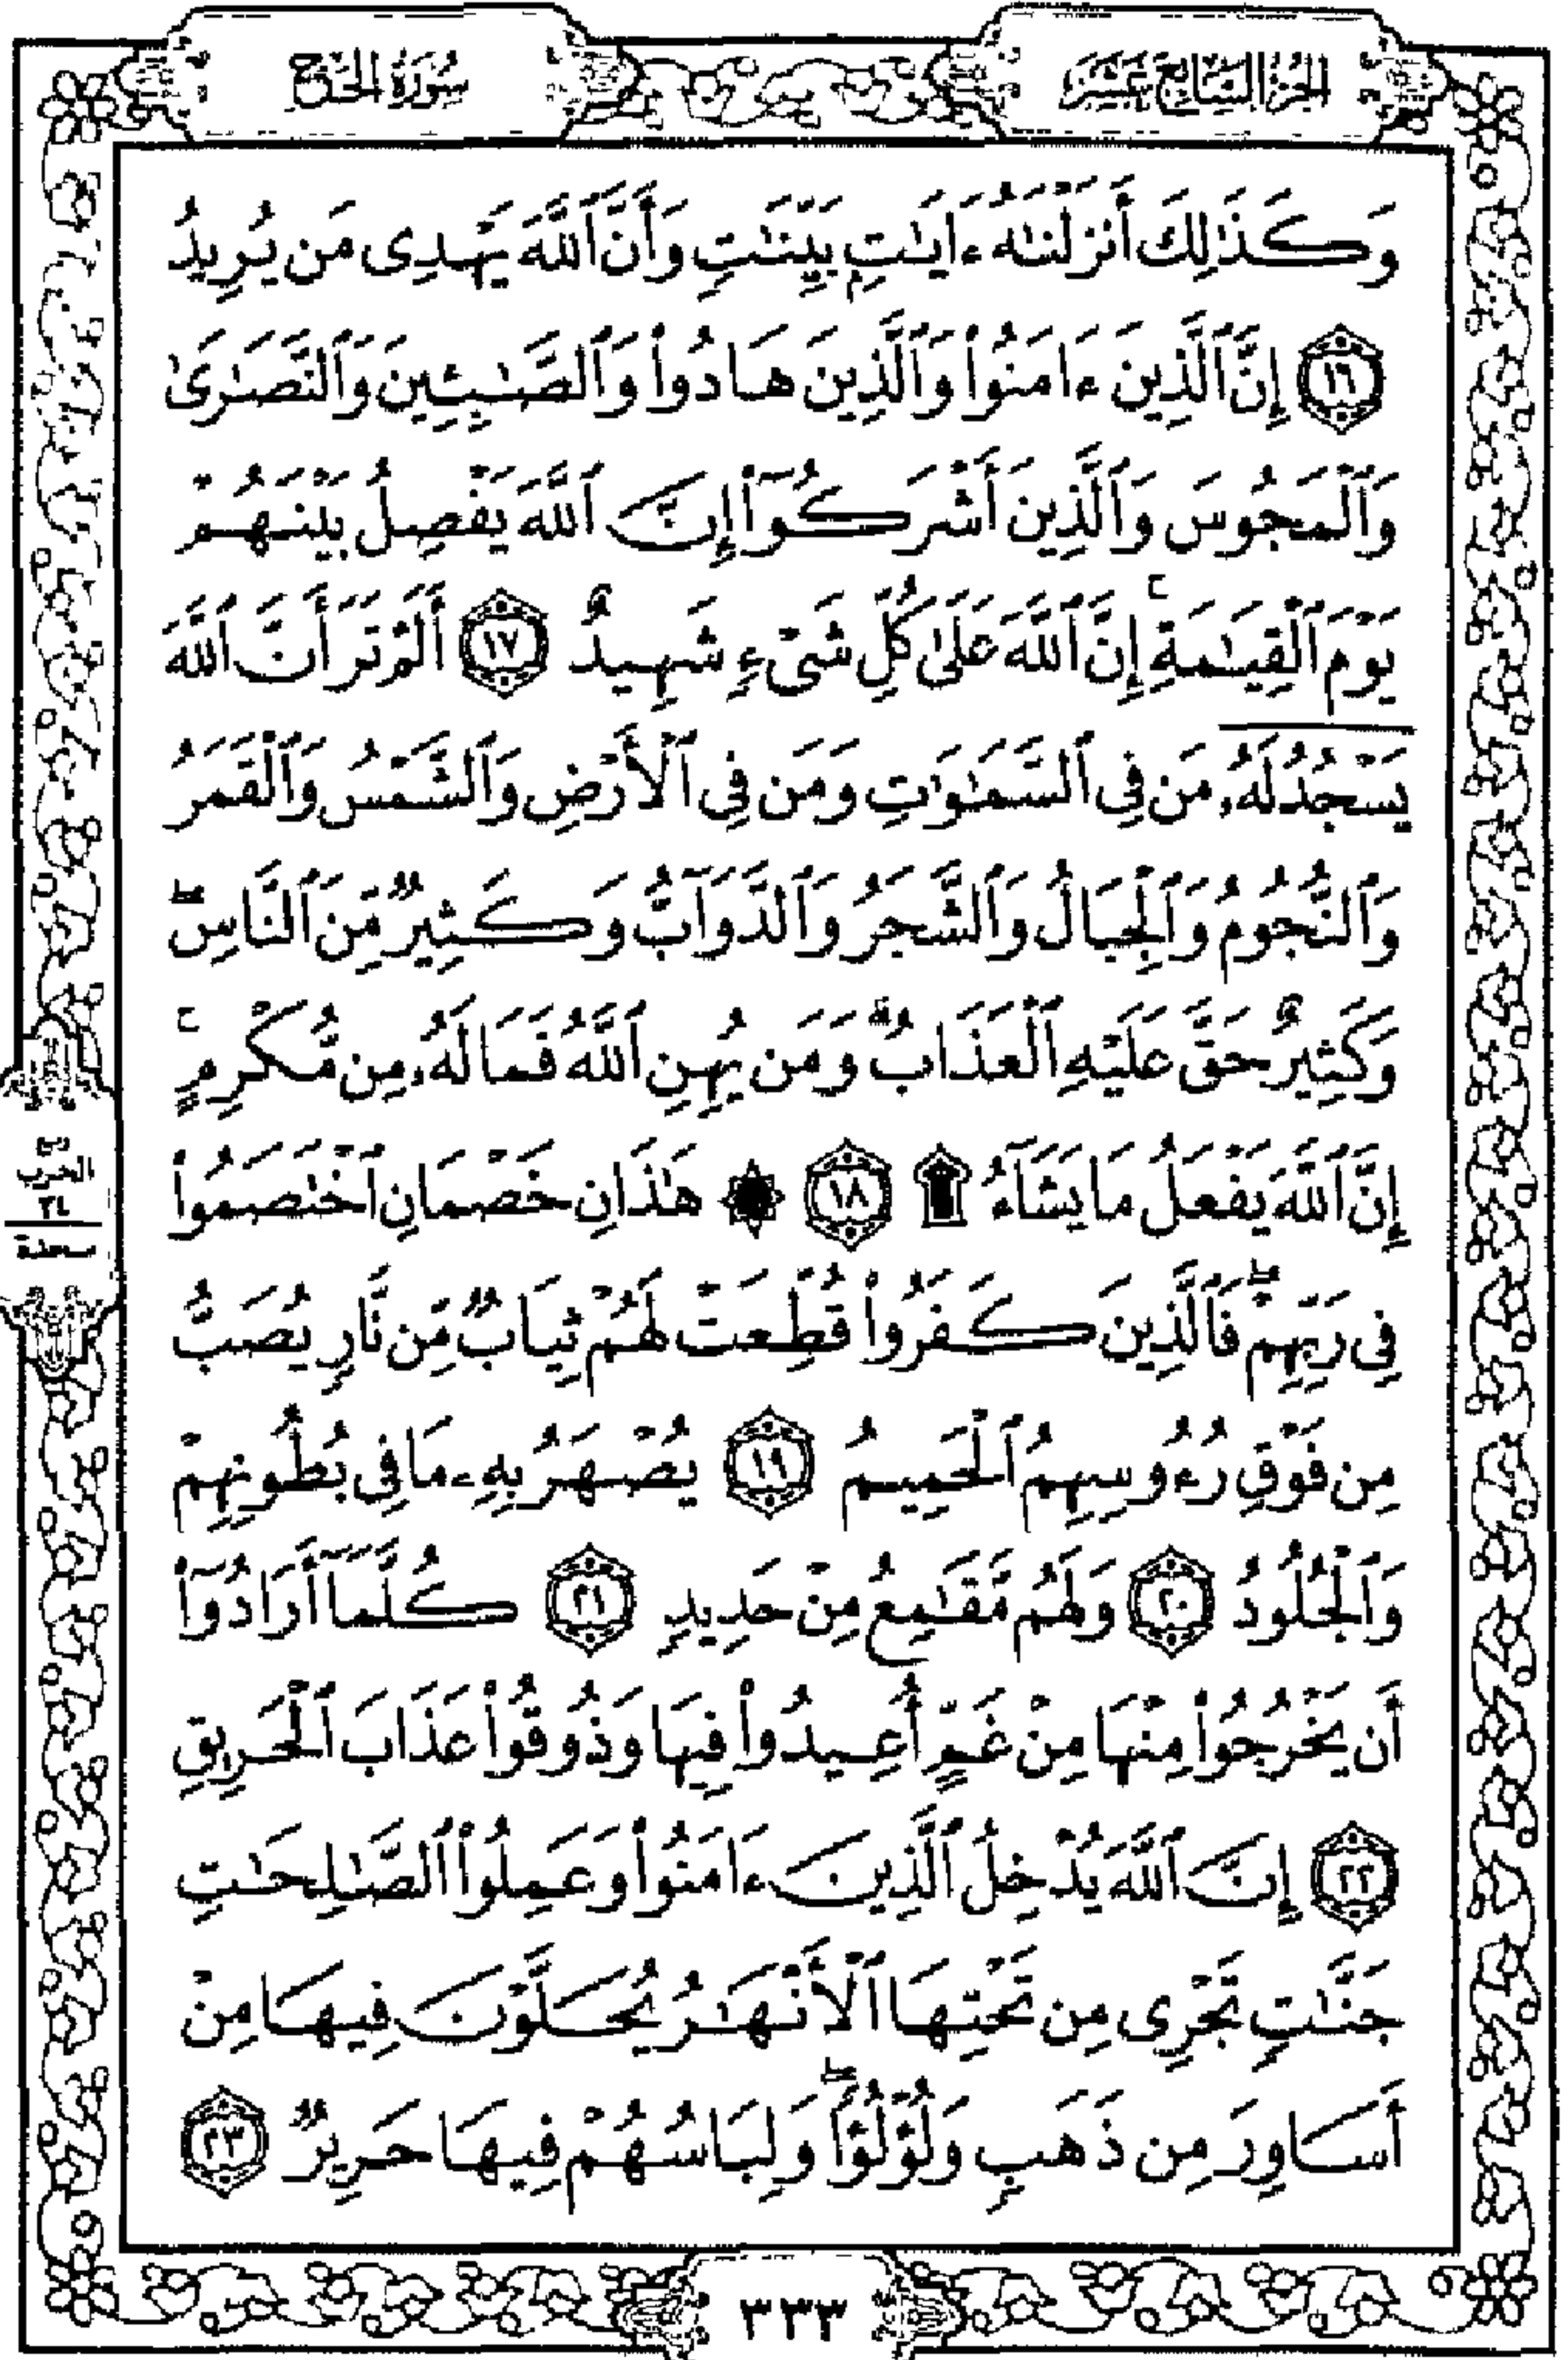 الجزء السابع عشر
سورة الحج
وَكَذَٰلِكَ أَنزَلْنَٰهُ ءَايَٰتٍۭ بَيِّنَٰتٍ وَأَنَّ ٱللَّهَ يَهْدِى مَن يُرِيدُ
﴿١٦﴾ إِنَّ ٱلَّذِينَ ءَامَنُوا۟ وَٱلَّذِينَ هَادُوا۟ وَٱلصَّٰبِـِٔينَ وَٱلنَّصَٰرَىٰ
وَٱلْمَجُوسَ وَٱلَّذِينَ أَشْرَكُوٓا۟ إِنَّ ٱللَّهَ يَفْصِلُ بَيْنَهُمْ
يَوْمَ ٱلْقِيَٰمَةِ ۚ إِنَّ ٱللَّهَ عَلَىٰ كُلِّ شَىْءٍ شَهِيدٌ ﴿١٧﴾ أَلَمْ تَرَ أَنَّ ٱللَّهَ
يَسْجُدُ لَهُۥ مَن فِى ٱلسَّمَٰوَٰتِ وَمَن فِى ٱلْأَرْضِ وَٱلشَّمْسُ وَٱلْقَمَرُ
وَٱلنُّجُومُ وَٱلْجِبَالُ وَٱلشَّجَرُ وَٱلدَّوَآبُّ وَكَثِيرٌ مِّنَ ٱلنَّاسِ ۖ
وَكَثِيرٌ حَقَّ عَلَيْهِ ٱلْعَذَابُ ۗ وَمَن يُهِنِ ٱللَّهُ فَمَا لَهُۥ مِن مُّكْرِمٍ ۚ
إِنَّ ٱللَّهَ يَفْعَلُ مَا يَشَآءُ ۩ ﴿١٨﴾ ۞ هَٰذَانِ خَصْمَانِ ٱخْتَصَمُوا۟
فِى رَبِّهِمْ ۖ فَٱلَّذِينَ كَفَرُوا۟ قُطِّعَتْ لَهُمْ ثِيَابٌ مِّن نَّارٍ يُصَبُّ
مِن فَوْقِ رُءُوسِهِمُ ٱلْحَمِيمُ ﴿١٩﴾ يُصْهَرُ بِهِۦ مَا فِى بُطُونِهِمْ
وَٱلْجُلُودُ ﴿٢٠﴾ وَلَهُم مَّقَٰمِعُ مِنْ حَدِيدٍ ﴿٢١﴾ كُلَّمَآ أَرَادُوٓا۟
أَن يَخْرُجُوا۟ مِنْهَا مِنْ غَمٍّ أُعِيدُوا۟ فِيهَا وَذُوقُوا۟ عَذَابَ ٱلْحَرِيقِ
﴿٢٢﴾ إِنَّ ٱللَّهَ يُدْخِلُ ٱلَّذِينَ ءَامَنُوا۟ وَعَمِلُوا۟ ٱلصَّٰلِحَٰتِ
جَنَّٰتٍ تَجْرِى مِن تَحْتِهَا ٱلْأَنْهَٰرُ يُحَلَّوْنَ فِيهَا مِنْ
أَسَاوِرَ مِن ذَهَبٍ وَلُؤْلُؤًا ۖ وَلِبَاسُهُمْ فِيهَا حَرِيرٌ ﴿٢٣﴾
سجدة
٣٣٣